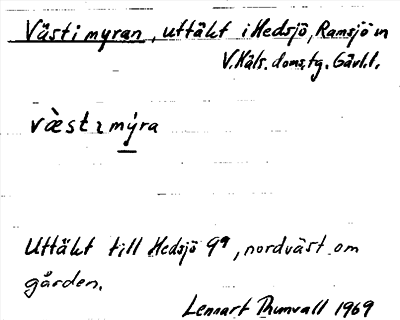 Västimyran, uttäkt i Hedsjö, Ramsjö sn
V. Häls. doms.tg. Gävl.l.
væ̀stɩmýra
Uttäkt till Hedsjö 9⁹, nordväst om
gården.
Lennart Thunvall 1969